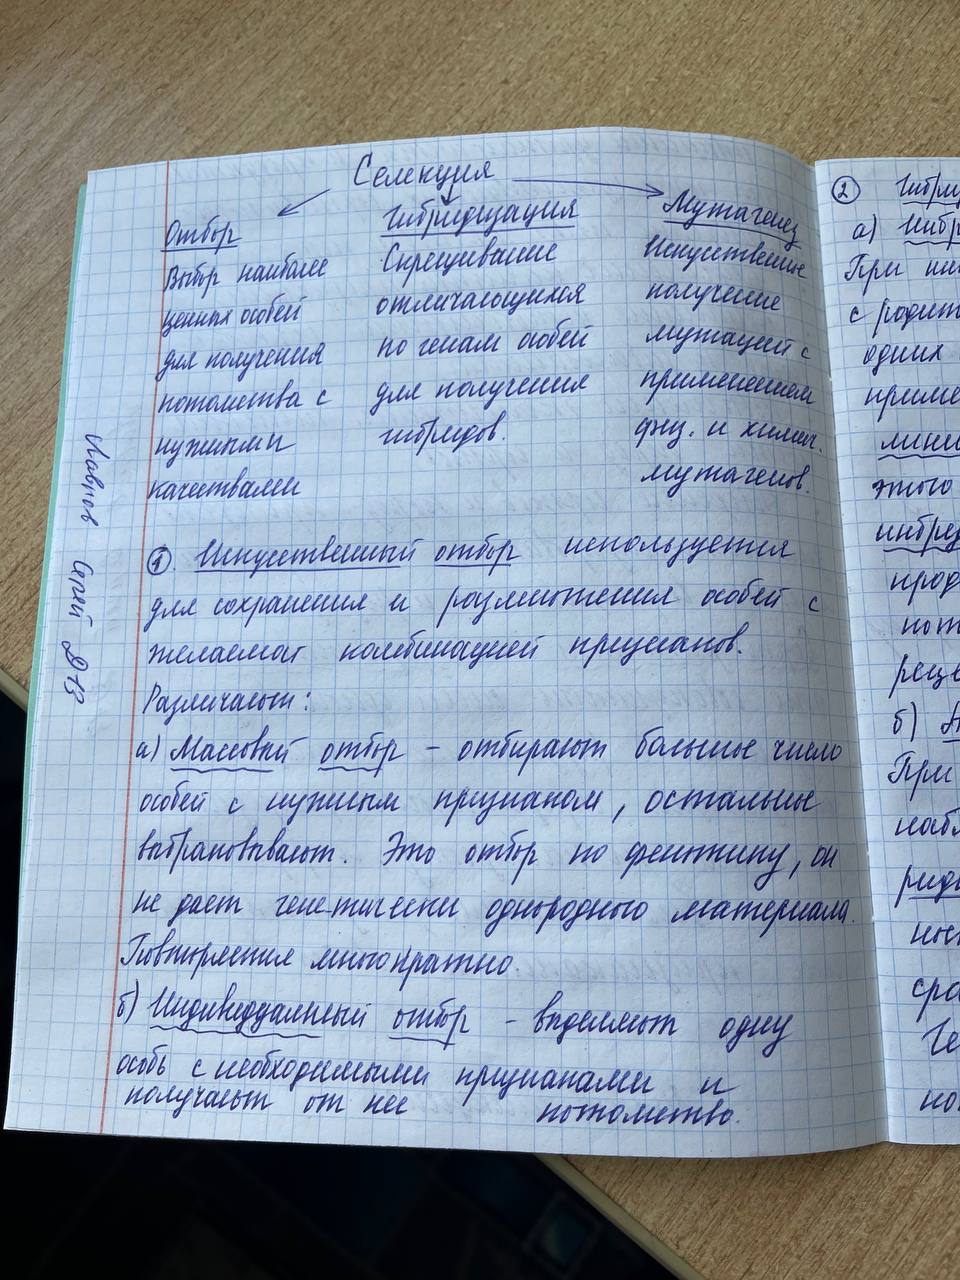 Селекция
Отбор
Выбор наиболее
ценных особей
для получения
потомства с
нужными
качествами
Гибридизация
Скрещивание
отличающихся
по генам особей
для получения
гибридов.
Мутагенез
Искуственное
получение
мутаций с
применением
физ. и химич.
мутагенов.
① Искуственный отбор используется
для сохранения и размножения особей с
желаемой комбинацией признаков.
Различают:
а) Массовый отбор – отбирают большое число
особей с нужным признаком, остальные
выбраковывают. Это отбор по фенотипу, он
не дает генетически однородного материала.
Повторяется многократно.
б) Индивидуальный отбор – выделяют одну
особь с необходимыми признаками и
получают от нее потомство.
②
а)
При
с
одних
этого
б)
При